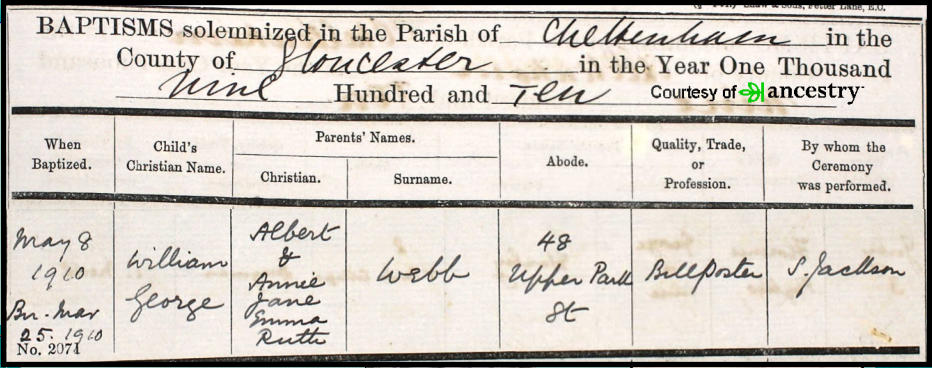 BAPTISMS solemnized in the Parish of Cheltenham in the
County of Gloucester in the Year One Thousand
Nine Hundred and Ten
Courtesy of ancestry
When Baptized.
Child's Christian Name.
Parents' Names.
Christian.
Surname.
Abode.
Quality, Trade, or Profession.
By whom the Ceremony was performed.
May 8
1910
Bn. Mar
25. 1910
No. 2071
William
George
Albert
&
Annie
Jane
Emma
Ruth
Webb
48
Upper Park
St
Billposter
S. Jackson